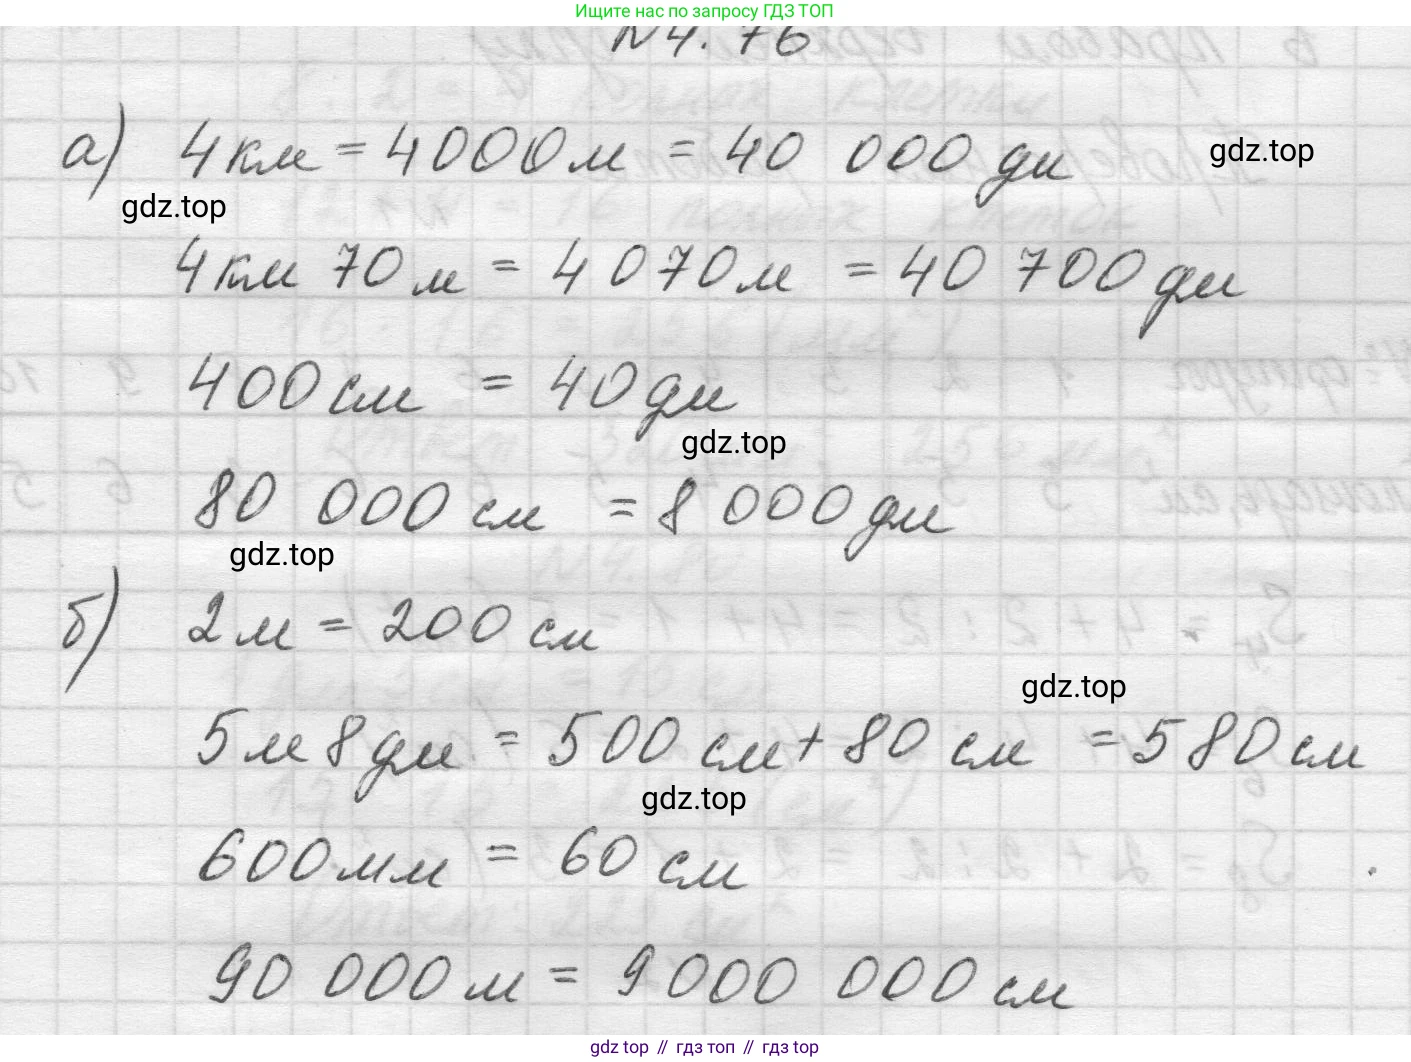 Ищите нас по запросу ГДЗ ТОП
N4.76
а) 4км = 4000м = 40 000 дм
gdz.top
gdz.top
4км 70м = 4 070м = 40 700 дм
400см = 40дм
gdz.top
80 000см = 8 000дм
gdz.top
б) 2м = 200см
gdz.top
5м 8дм = 500 см + 80 см = 580см
gdz.top
600мм = 60 см
90 000м = 9000 000см
gdz top // гдз топ // гдз top